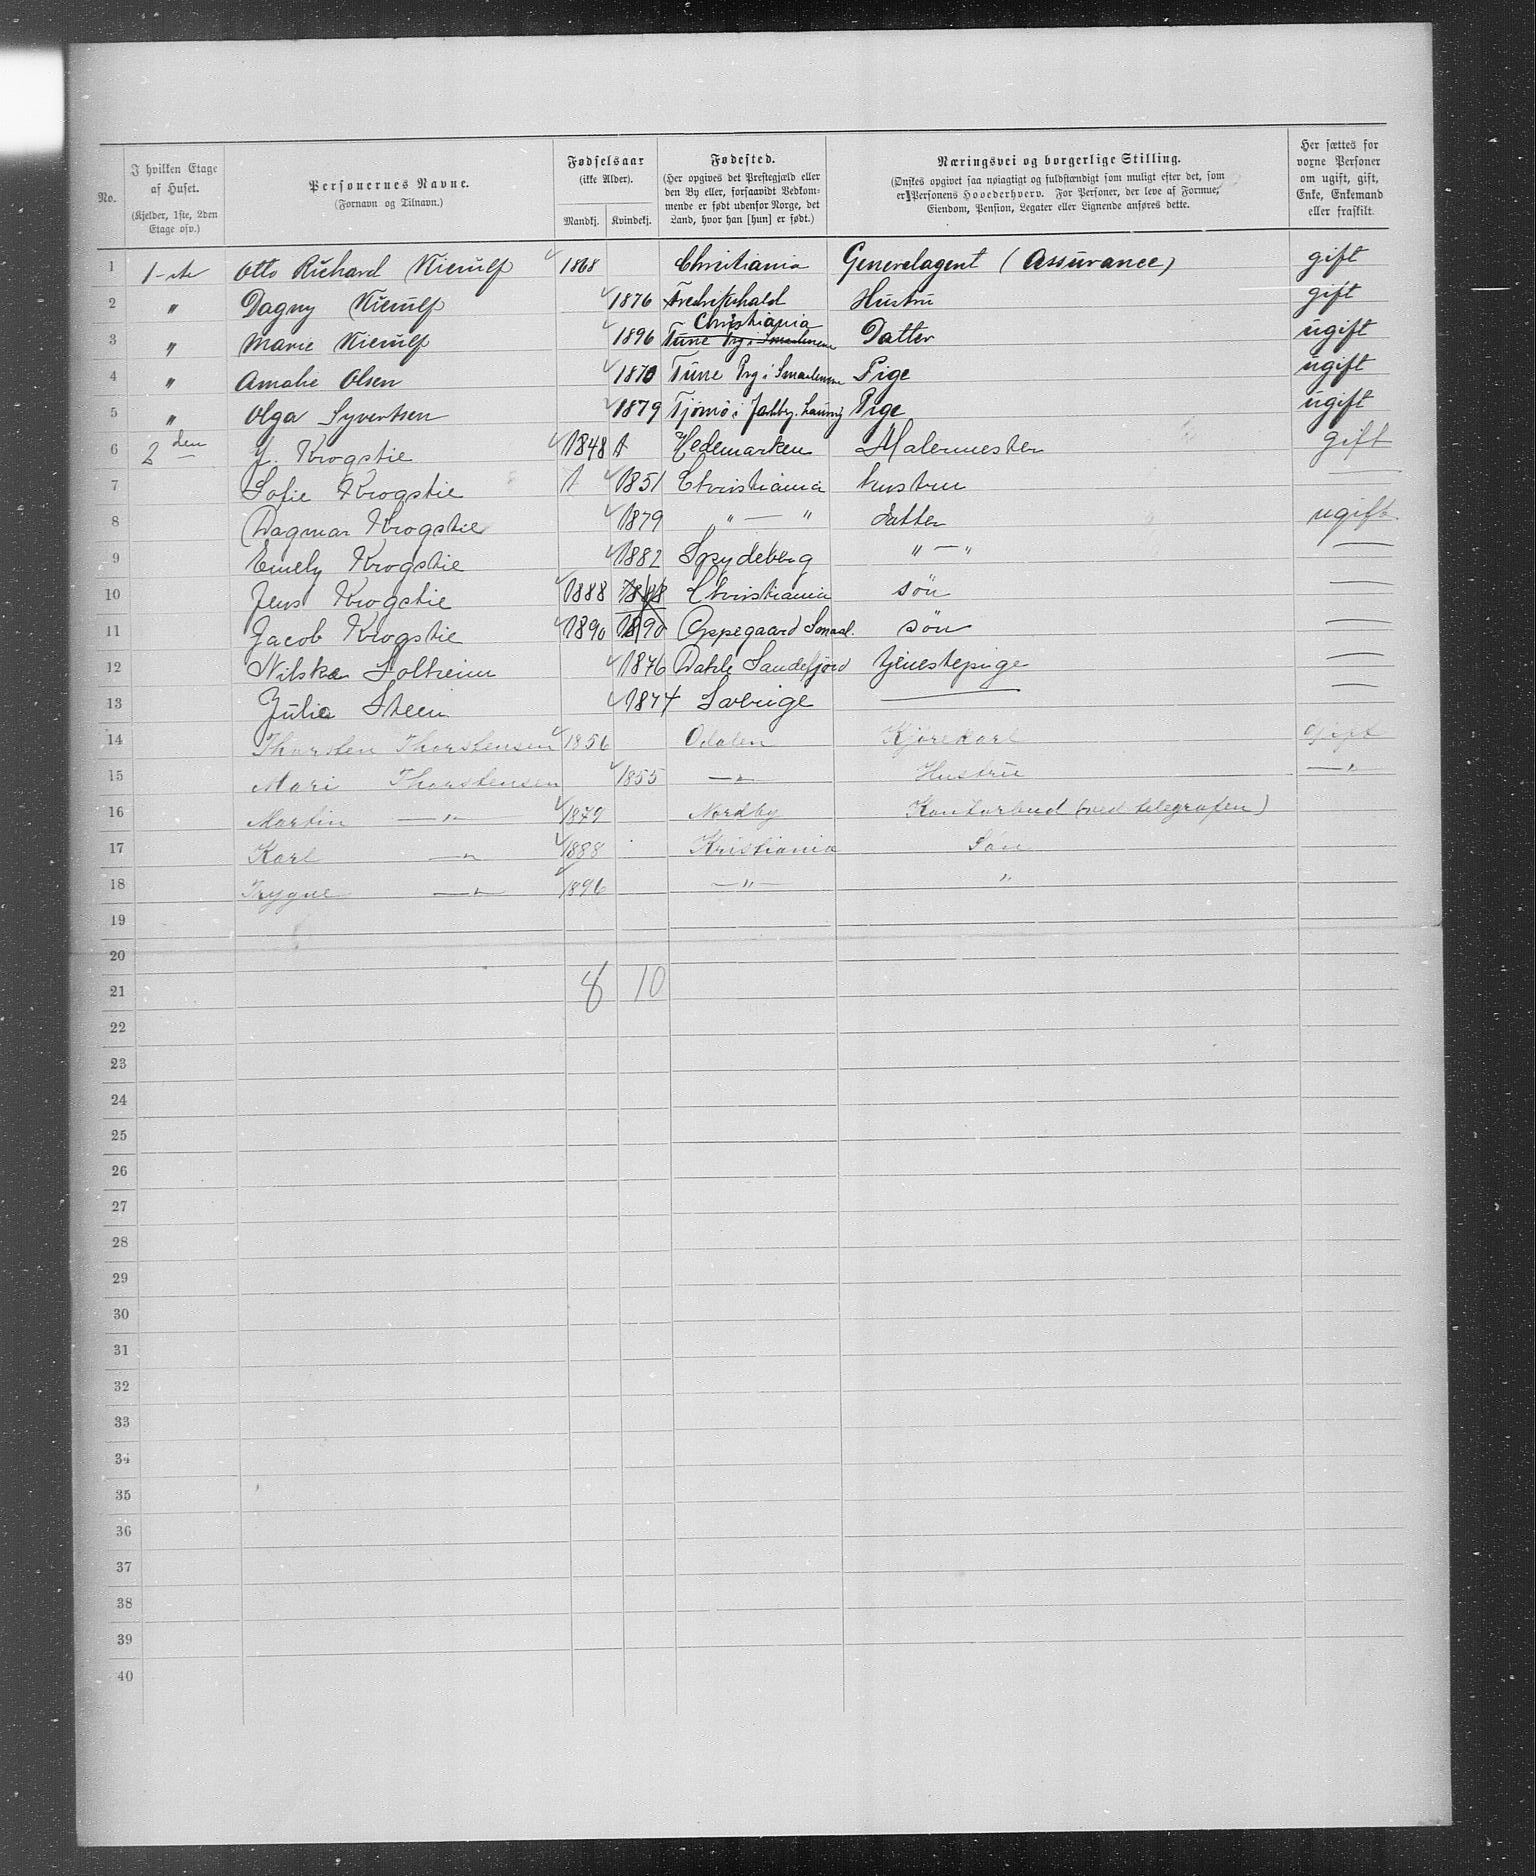 No.
I hvilken Etage af Huset.
(Kjelder, 1ste, 2den Etage osv.)
Personernes Navne.
(Fornavn og Tilnavn.)
Fødselsaar
(ikke Alder).
Mandkj. Kvindekj.
Fødested.
(Her opgives det Prestegjæld eller den By eller, forsaavidt Vedkommende er født udenfor Norge, det Land, hvor han [hun] er født.)
Næringsvei og borgerlige Stilling.
(Ønskes opgivet saa nøiagtigt og fuldstændigt som muligt efter det, som er Personens Hovederhverv. For Personer, der leve af Formue, Eiendom, Pension, Legater eller Lignende anføres dette.
Her sættes for voxne Personer om ugift, gift, Enke, Enkemand eller fraskilt.
1 1-ste Otto Richard Kierulf 1868 Christiania Generalagent (Assurance) gift
2 " Dagny Kierulf 1876 Fredrikshald Hustru gift
3 " Marie Kierulf 1896 Christiania Tune Prg i Smaalenene Datter ugift
4 " Amalie Olsen 1870 Tune Prg i Smaalenene Pige ugift
5 " Olga Syvertsen 1879 Tjømø i Jarlsbg. Laurvig Pige ugift
6 2den J. Krogstie 1848 1 Hedemarken Malermester gift
7 Sofie Krogstie 1 1851 Christiania hustru —
8 Dagmar Krogstie 1879 " — " datter ugift
9 Emely Krogstie 1882 Spydeberg " — " —
10 Jens Krogstie 1888 1888 Christiania søn —
11 Jacob Krogstie 1890 1890 Oppegaard Smaal. søn —
12 Solheim 1876 Sandefjord tjenestepige —
13 Julie Steen 1874 Sverige — —
14 Thorsten Thorstensen 1856 Odalen Kjørekarl Gift
15 Mari Thorstensen 1855 — " — Hustru — "
16 Martin — " — 1879 Nordby Kontorbud (ved telegrafen)
17 Karl — " — 1888 Kristiania Søn
18 Trygve — " — 1896 — " — "
19
20
21 8 10
22
23
24
25
26
27
28
29
30
31
32
33
34
35
36
37
38
39
40